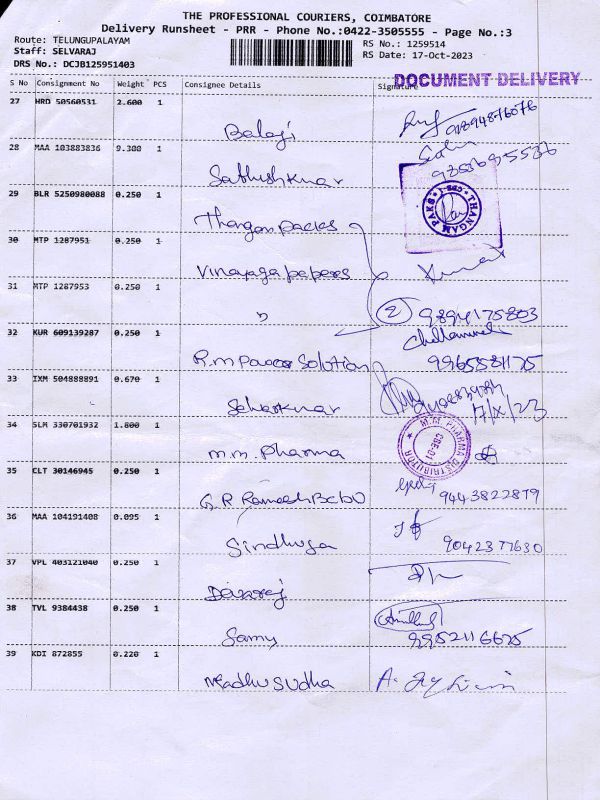 THE PROFESSIONAL COURIERS, COIMBATORE
Delivery Runsheet - PRR - Phone No.:0422-3505555 - Page No.:3
Route: TELUNGUPALAYAM
RS No.: 1259514
Staff: SELVARAJ
RS Date: 17-Oct-2023
DRS No.: DCJB125951403
DOCUMENT DELIVERY
S No Consignment No Weight PCS Consignee Details Signature
27 HRD 50560531 2.600 1 Balaji
28 MAA 103883836 9.300 1 Sathishkumar
29 BLR 5250980088 0.250 1 Thangam
THANGAM PAKS
30 MTP 1287951 0.250 1 Vinayaga papers
31 MTP 1287953 0.250 1 " 2 9894175803
32 KUR 609139287 0.250 1 R.m Solution
33 IXM 504888891 0.670 1
17/X/23
34 SLM 330701932 1.800 1 m.m. pharma
M.M. PHARMA DISTRIBUTOR CBE-01
35 CLT 30146945 0.250 1 G.R 9443822879
36 MAA 104191408 0.095 1 Sindhuja 9042377630
37 VPL 403121040 0.250 1
38 TVL 9384438 0.250 1 Samy 9952116625
39 KDI 872855 0.220 1 Madhusudha